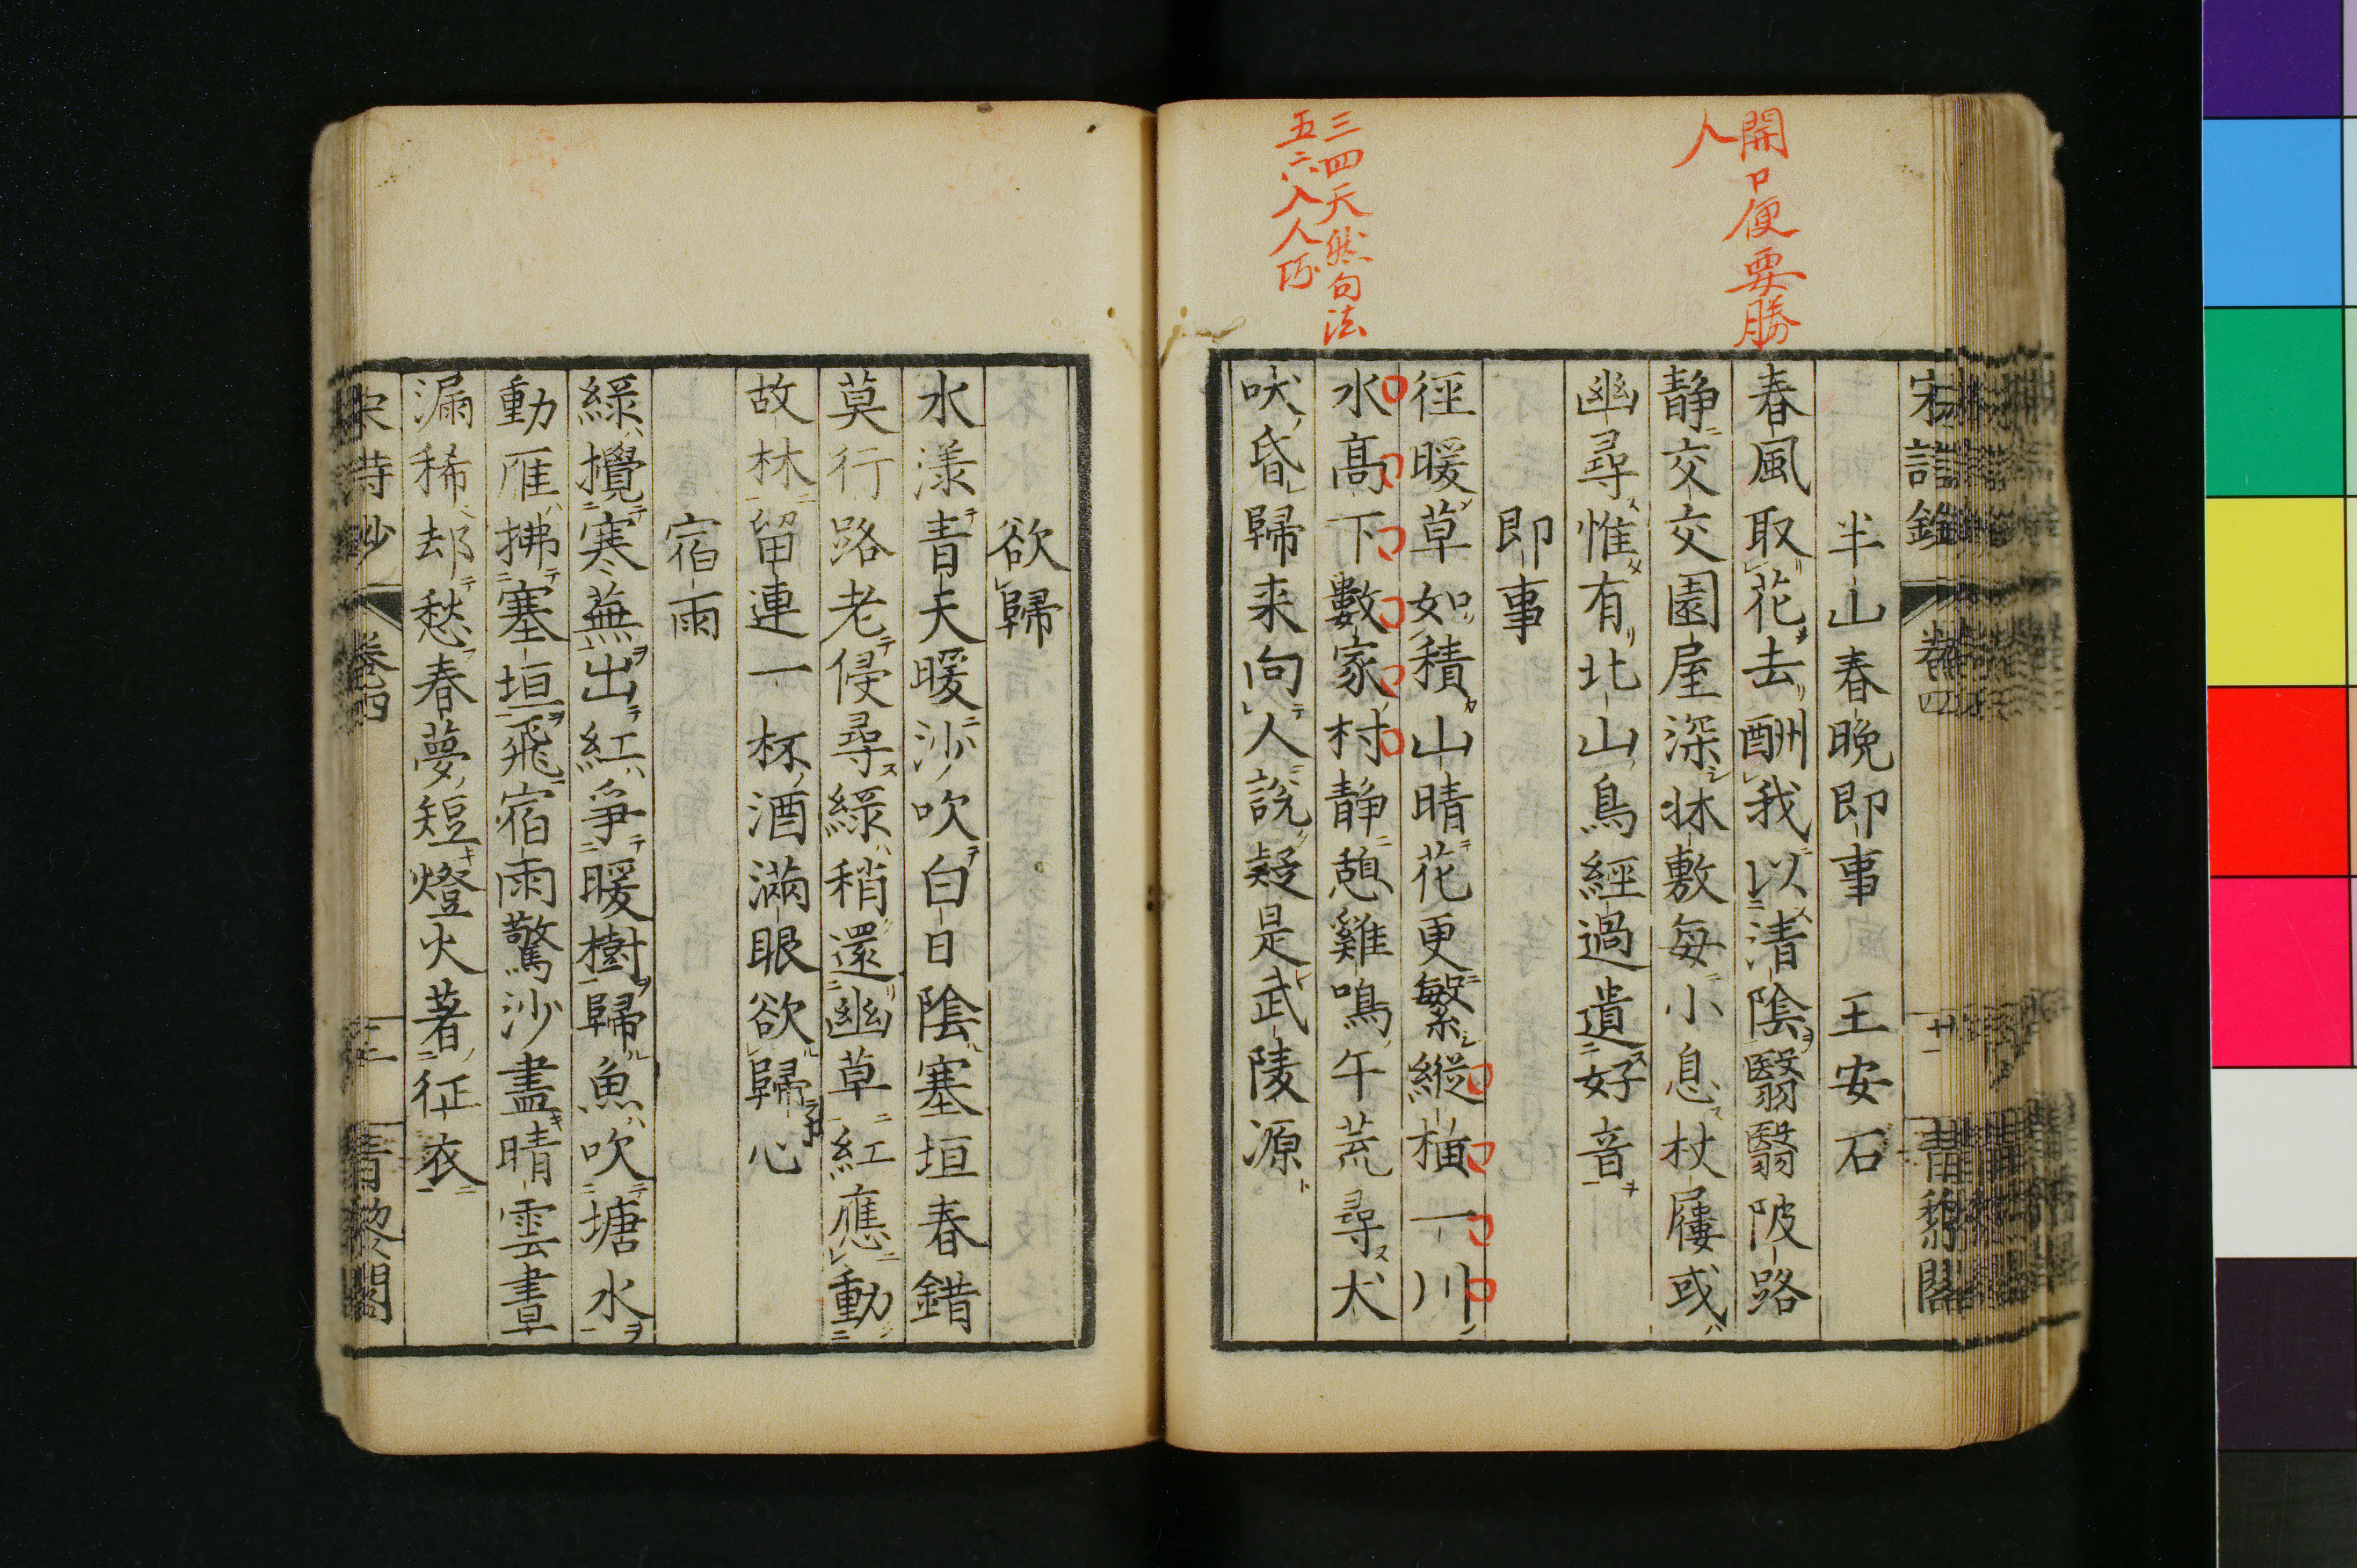 開口便要勝
人
三四天然句法
五六入人巧
半山春晩即事 王安石
春風取花去酬我以清陰翳翳陂路
静交交園屋深牀敷每小息杖屨或
幽尋惟有北山鳥經過遺好音
即事
徑暖草如積山晴花更繁縱橫一川
水高下數家村静憩雞鳴午荒尋犬
吠昏歸来向人說疑是武陵源
欲歸
水漾青天暖沙吹白日陰塞垣春錯
莫行路老侵尋綠稍還幽草紅應動
故林留連一杯酒滿眼欲歸心
宿雨
綠攪寒蕪出紅爭暖樹歸魚吹塘水
動雁拂塞垣飛宿雨驚沙盡晴雲晝
漏稀却愁春夢短燈火著征衣
宋詩鈔 卷四 青黎閣